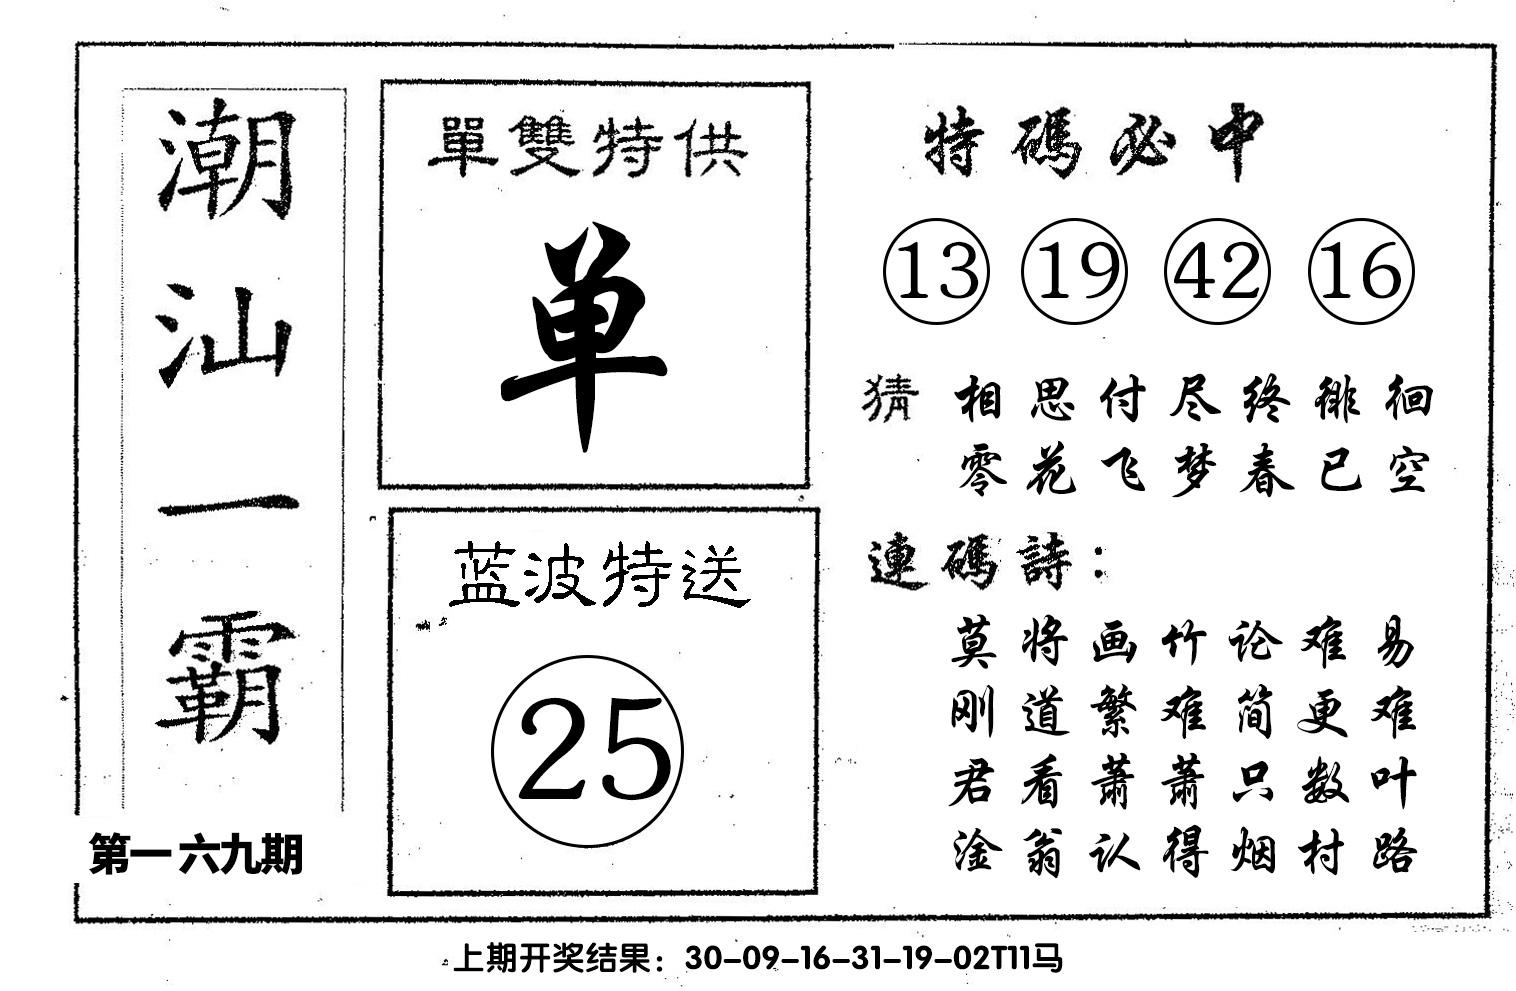 潮汕一霸
第一六九期
單雙特供
单
蓝波特送
25
特碼必中
13 19 42 16
猜 相思付尽终徘徊
零花飞梦春已空
連碼詩：
莫将画竹论难易
刚道繁难简更难
君看萧萧只数叶
淦翁认得烟村路
上期开奖结果：30-09-16-31-19-02T11马